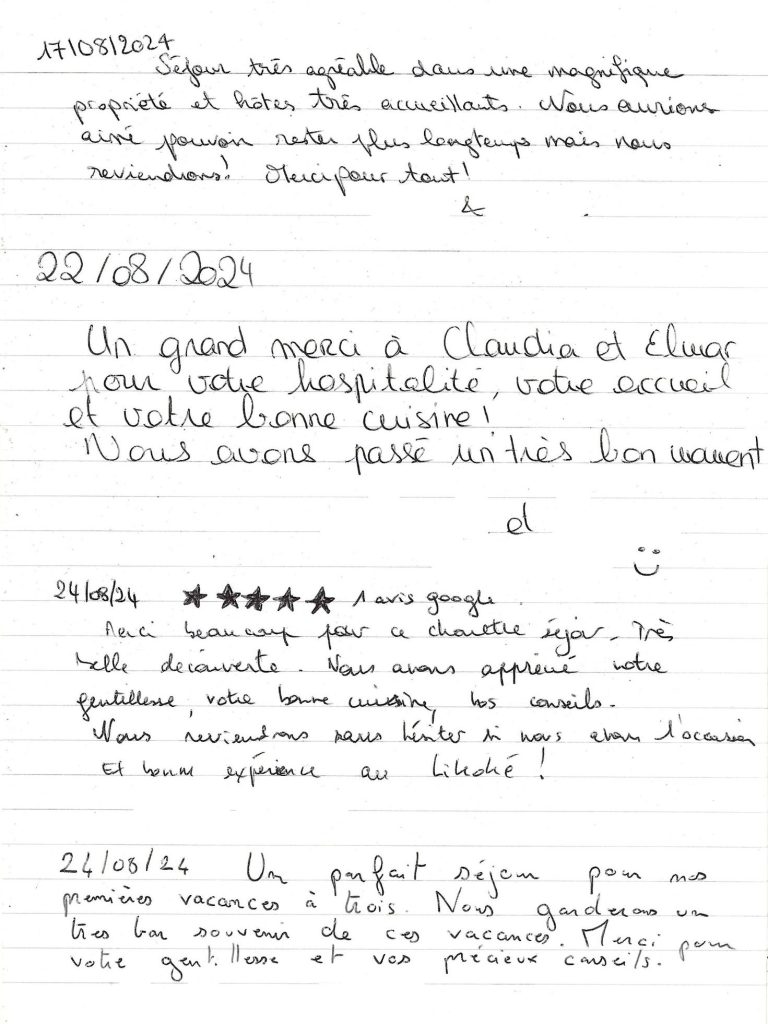 17/08/2024
Séjour très agréable dans une magnifique
propriété et hôtes très accueillants. Nous aurions
aimé pouvoir rester plus longtemps mais nous
reviendrons! Merci pour tout!
&
22/08/2024
Un grand merci à Claudia et Elmar
pour votre hospitalité, votre accueil
et votre bonne cuisine!
Nous avons passé un très bon moment
et
24/08/24 ★★★★★ 1 avis google
Merci beaucoup pour ce chouette séjour. Très
belle découverte. Nous avons apprécié votre
gentillesse, votre bonne cuisine, vos conseils.
Nous reviendrons sans hésiter si nous avons l'occasion
Et bonne expérience au !
24/08/24 Un parfait séjour pour nos
premières vacances à trois. Nous garderons un
très bon souvenir de ces vacances. Merci pour
votre gentillesse et vos précieux conseils.